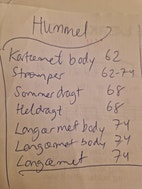 Hummel
Kortærmet body 62
Strømper 62-74
Sommerdragt 68
Heldragt 68
Langærmet body 74
Langærmet body 74
Langærmet 74